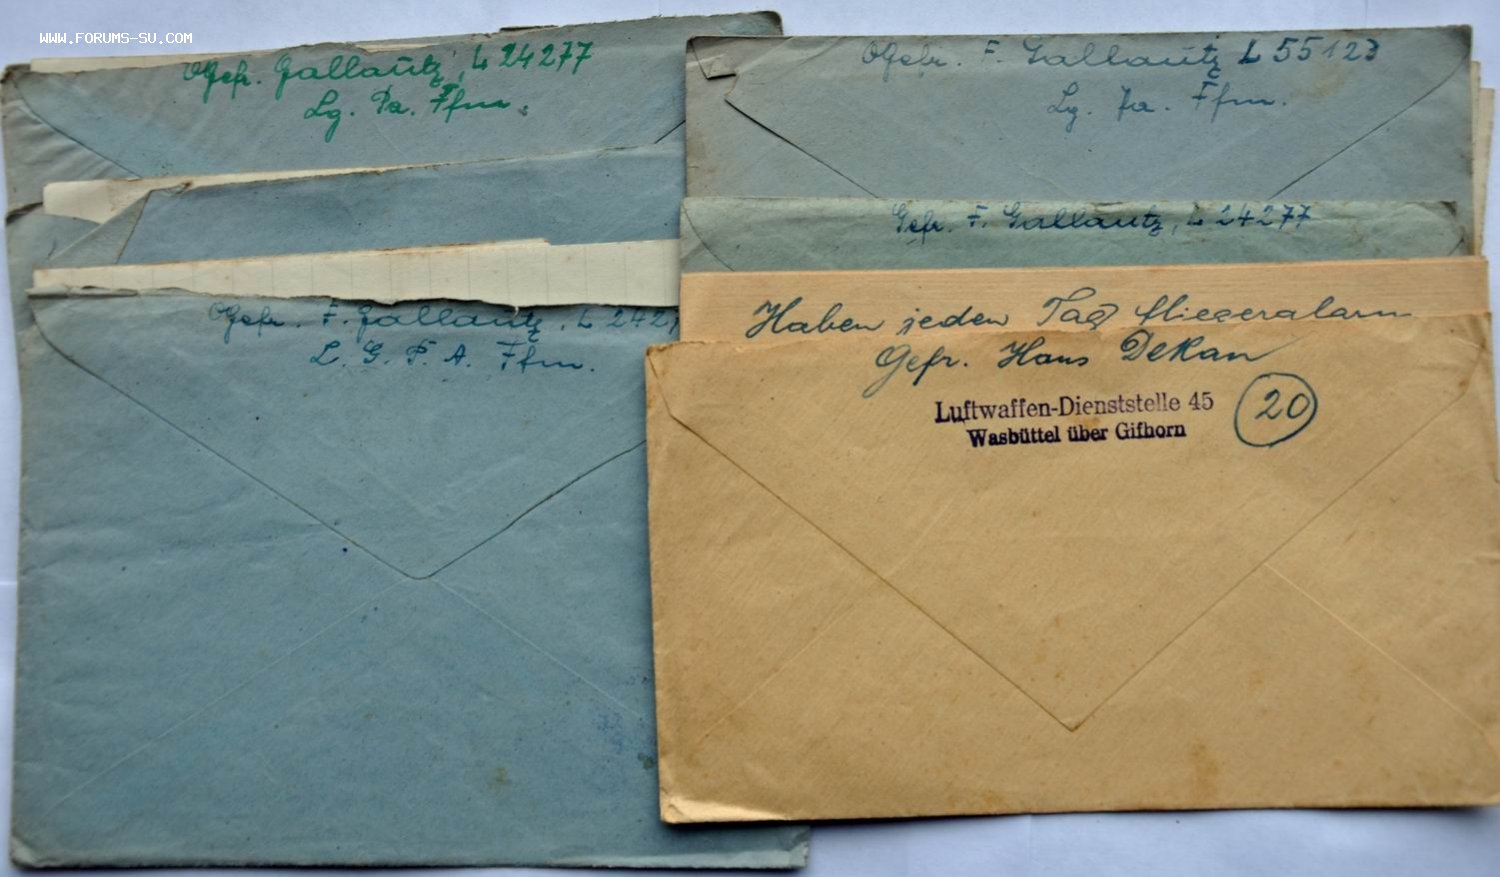 WWW.FORUMS-SU.COM
OGefr. Gallautz, L 24277
Lg. Pa. Ffm.
OGefr. F. Gallautz, L 2427
L. G. P. A. Ffm.
OGefr. F. Gallautz L 55123
Lg. Pa. Ffm.
Gefr. F. Gallautz, L 24277
Haben jeden Tag fliegeralarm
Gefr. Hans Dekan
Luftwaffen-Dienststelle 45
Wasbüttel über Gifhorn
20